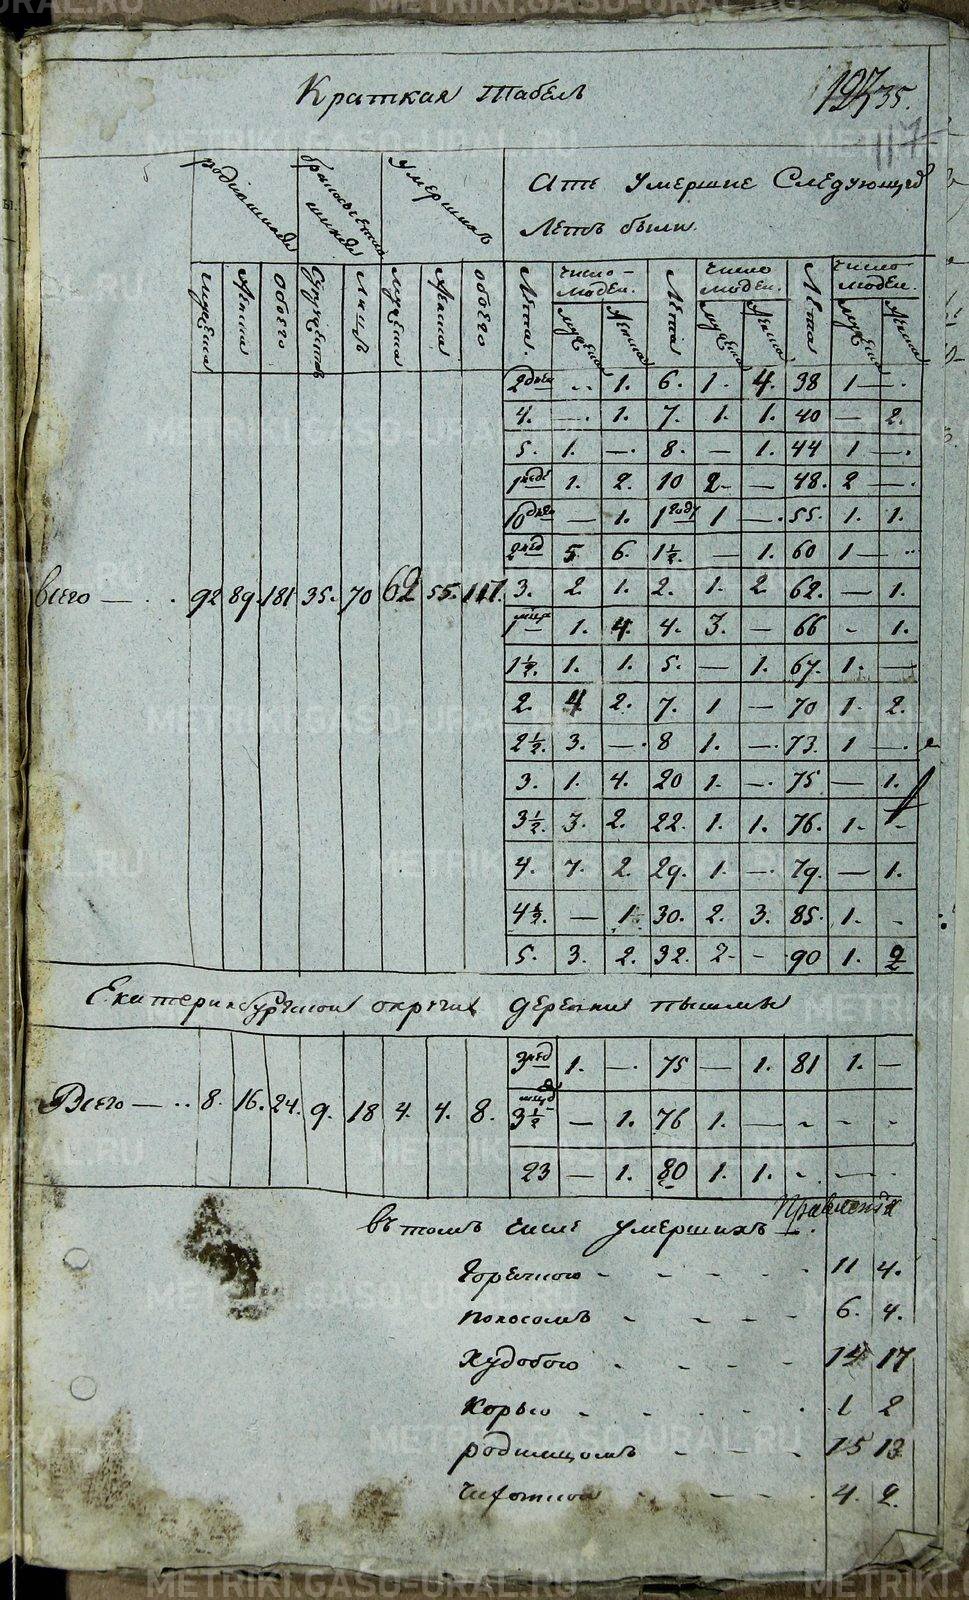 Краткая Табель
35.
117
родившихся бракосочетавшихся умершихъ
Ате умершие Следующей
Летъ были.
мужеска женска обоего Супружествъ лицъ мужеска женска обоего
Лета. число людеи. Лета число людеи. Лета число людеи.
мужеска женска мужеска женска мужеска женска
2 дней .. 1. 6. 1. 4. 38 1 — .
4. — . 1. 7. 1. 1. 40 — 2.
5. 1. — . 8. — 1. 44 1 — .
1 неде 1. 2. 10 2 — — 48. 2 — .
10 дней — 1. 1 году 1 — . 55. 1. 1.
2 нед 5. 6. 1½. — 1. 60 1 — ..
всего — . . 92 89. 181 35. 70 62 55. 117. 3. 2 1. 2. 1. 2 62. — 1.
1 — 1. 4. 4. 3. — 66 - 1.
1½. 1. 1. 5. — 1. 67. 1. —
2. 4 2. 7. 1 — 70 1. 2.
2½. 3. — . 8 1. — . 73. 1 — .
3. 1. 4. 20 1. — . 75 — 1.
3½. 3. 2. 22. 1. 1. 76. 1. -
4. 7. 2. 29. 1. — . 79. — 1.
4½. — 1. 30. 2. 3. 85. 1. -
5. 3. 2. 32. 2 - - 90 1. 2
Екатеринбургской округи деревни пышмы
3 нед 1. — . 75 — 1. 81 1. —
Всего — .. 8. 16. 24. 9. 18 4. 4. 8. 3½ — 1. 76 1. — - - -
23 — 1. 80 1. 1. - — -
въ томъ числе умершихъ
Горячкою - - - - - 11 4.
поносомъ - - - - 6. 4.
Худобою - - - - 14 17
Корью - - - - 1 2
родимцомъ - - - - 15 13
Чихоткой - - - 4. 2.